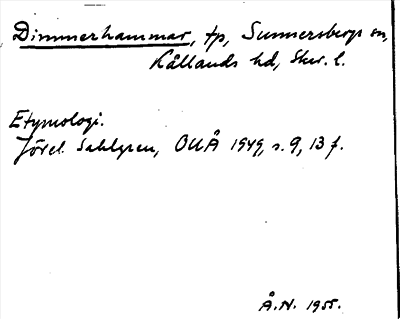 Dimmerhammar, tp, Sunnersbergs sn,
Kållands hd, Skar. l.
Etymologi.
Jöran Sahlgren, OUÅ 1949, s. 9, 13 f.
Å.N. 1955.